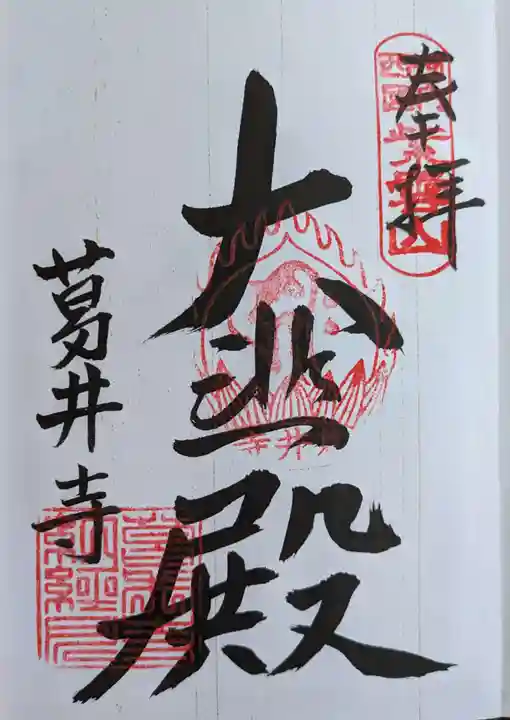 奉拝
大悲殿
葛井寺